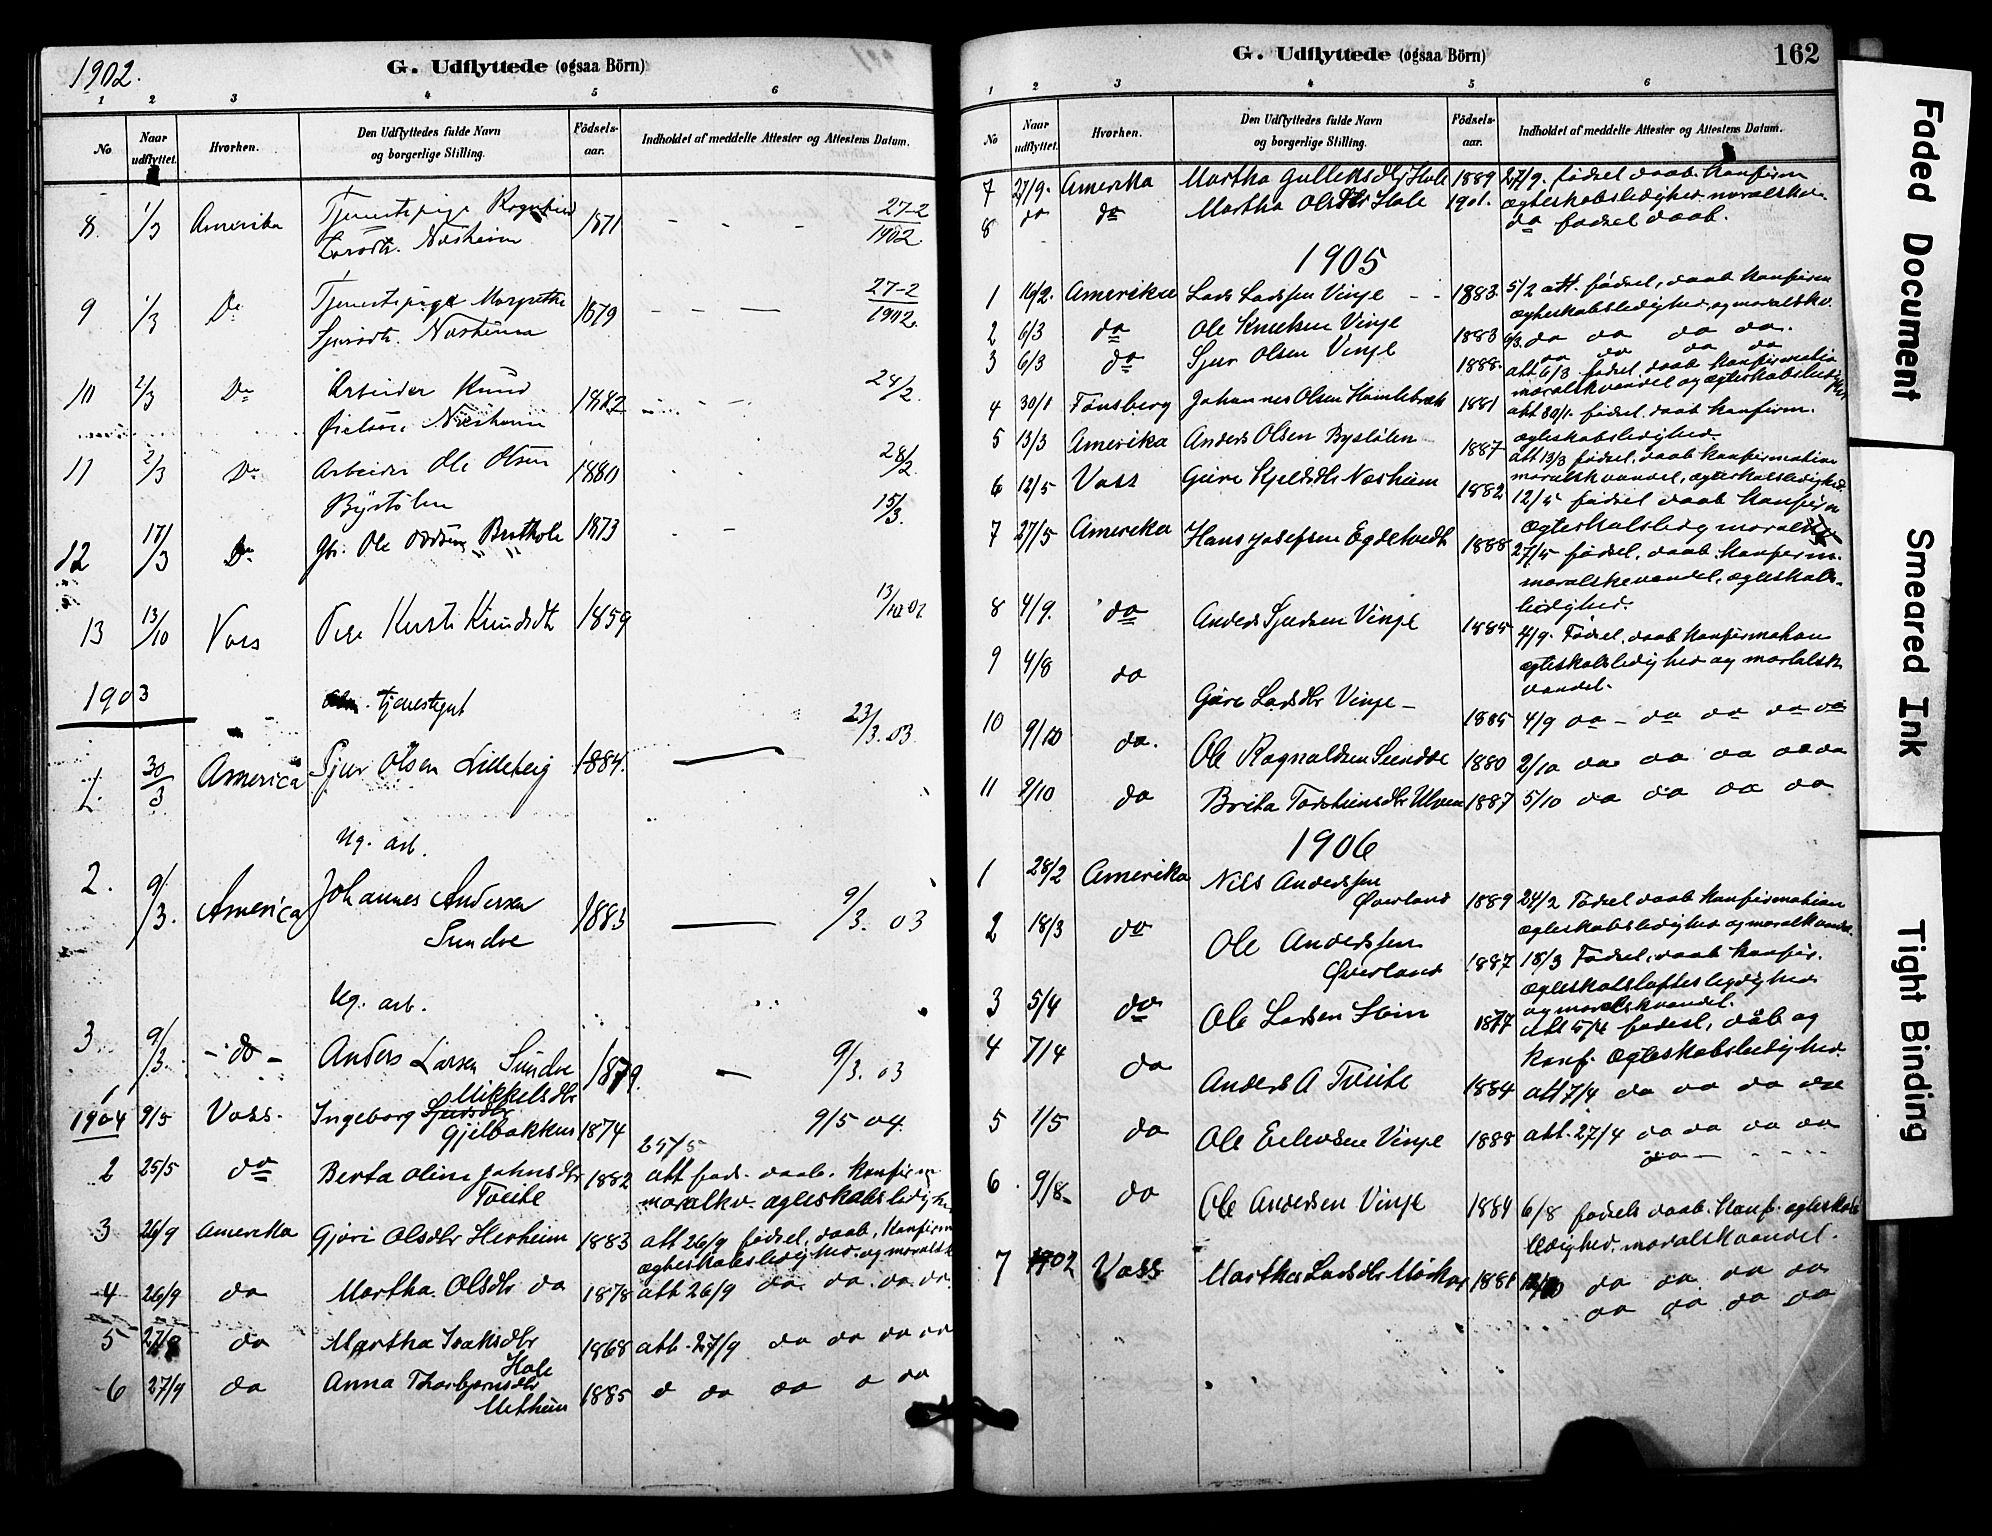 1902.
G. Udflyttede (ogsaa Börn)
1 2 3 4 5 6
No Naar udflyttet. Hvorhen. Den Udflyttedes fulde Navn og borgerlige Stilling. Födsels-aar. Indholdet af meddelte Attester og Attestens Datum.
8 1/3 Amerika Tjenestepige Ragnhild 1871 - - - 27-2
Larsdtr. Næsheim 1902.
9 1/3 Do Tjenestepige Margrethe 1879 - - - 27-2
Sjursdtr. Næsheim 1902.
10 2/3 Do Arbeider Knud 1882 28/2
Næsheim
11 2/3 Do Arbeider Ole Olsen 1880 28/2
Byrstölen
12 17/3 Do Ole 1873 - 15/3.
13 13/10 Voss Kersti Knudsdtr 1859 13/10 02
1903
tjenestegut
1. 30/3 America Sjur Olsen Lillebeig 1884. — 23/3.03
Ug. arb.
2. 9/3. America Johannes Andersen 1883 — 9/3. 03
Sundve
Ug. arb.
3 9/3. - do - Anders Larsen Sundve 1879. — 9/3. 03
1
Mikkelsdtr
1904 9/5 Voss. Ingeborg Sjursdtr 1874 9/5 04
Gjelbakkus
25/5
2 25/5 do Berta Olina Johnsdtr 1882 att föds. daab. Konfirm
Tveite moralkv. ægteskabsledigh
3 26/9 Amerika Gjøri Olsdtr Herheim 1883 att 26/9 födsel, daab, Konfirm
ægteskabsledighed og moralsk
4 26/9 do Martha Olsdtr do 1878 att 26/9 do do. do do.
5 27/9 do Martha Isaksdtr 1868 att. 27/9 do do do do
Hole
6 27/9 do Anna Thorbjørnsdtr 1885 do do do do
Metheim
G. Udflyttede (ogsaa Börn) 162
1 2 3 4 5 6
No Naar udflyttet. Hvorhen. Den Udflyttedes fulde Navn og borgerlige Stilling. Födsels-aar. Indholdet af meddelte Attester og Attestens Datum.
7 27/9. Amerika Martha Gulleksdtr Hole 1889 27/9. födsel daab. Konfirm
ægteskabsledighed moralskv.
8 do do Martha Olsdtr Hole 1901. do födsel daab.
1905
1 14/2. Amerika Lars Larssen Vinje - - 1883. 5/2 att. födsel, daab Konfirm
ægteskabsledighed, og moralskv.
2 6/3 do Ole Knutsen Vinje 1883 6/3. do do do do.
3 6/3 do Sjur Olsen Vinje 1888. do do do do
att 6/3 födsel daab Konfirmation
moralsk vandel og ægteskabsledighed
4 30/1 Tønsberg Johannes Olsen Hamlebrek 1881 att 30/1. födsel. daab Konfirm.
ægteskabsledighed.
5 13/3 Amerika Anders Olsen Bystölen 1887 att 13/3 födsel, daab Konfirmation
moralsk vandel, ægteskabsledighed.
6 12/5 Voss Guro Kjeldsdtr Næsheim 1882 12/5 födsel daab Konfirm
ægteskabsledig moralsk
7 27/5 Amerika Hans Josefsen Egdetvedt 1888 27/5 födsel, daab Konfirm.
moralske vandel, ægteskabs-
ledighed.
8 4/9. do Anders Sjursen Vinje 1885 4/9. Födsel, daab Konfirmation
ægteskabsledighed og moralsk
vandel.
9 4/8 do Guro Larsdtr Vinje - 1885 4/9 do - do do do do
10 9/10 do. Ole Ragnaldsen Sundve 1880 2/10 do do do do
11 9/10 do Brita Torsteinsdtr Ulven 1887 5/10 do do do do
1906
1 28/2 Amerika Nils Anderssen 1889 24/2 Födsel daab Konfirmation
Øverland ægteskabsledighed og moralsk vandel.
2 18/3 do Ole Anderssen 1887 18/3 Födsel, daab Konfir.
Øverland ægteskabsløftesledighed
og moralsk vandel.
3 5/4 do Ole Larsen Hein 1877 Att 5/4 födesl, dåb og
Konf. Ægteskabsledighed
4 7/4 do Anders A Tveite 1884 att 7/4 do do do do
5 1/5 do Ole Eilevsen Vinje 1888 att. 27/4 do do do do
do - - - -
6 9/8 do Ole Andersen Vinje 1884 6/8 födsels daab. Konf. ægteskabs
ledighed. moralsk vandel.
7 1902 Voss Martha Larsdtr Mörkve 1881 do do do do
do do do do
Faded Document
Smeared Ink
Tight Binding